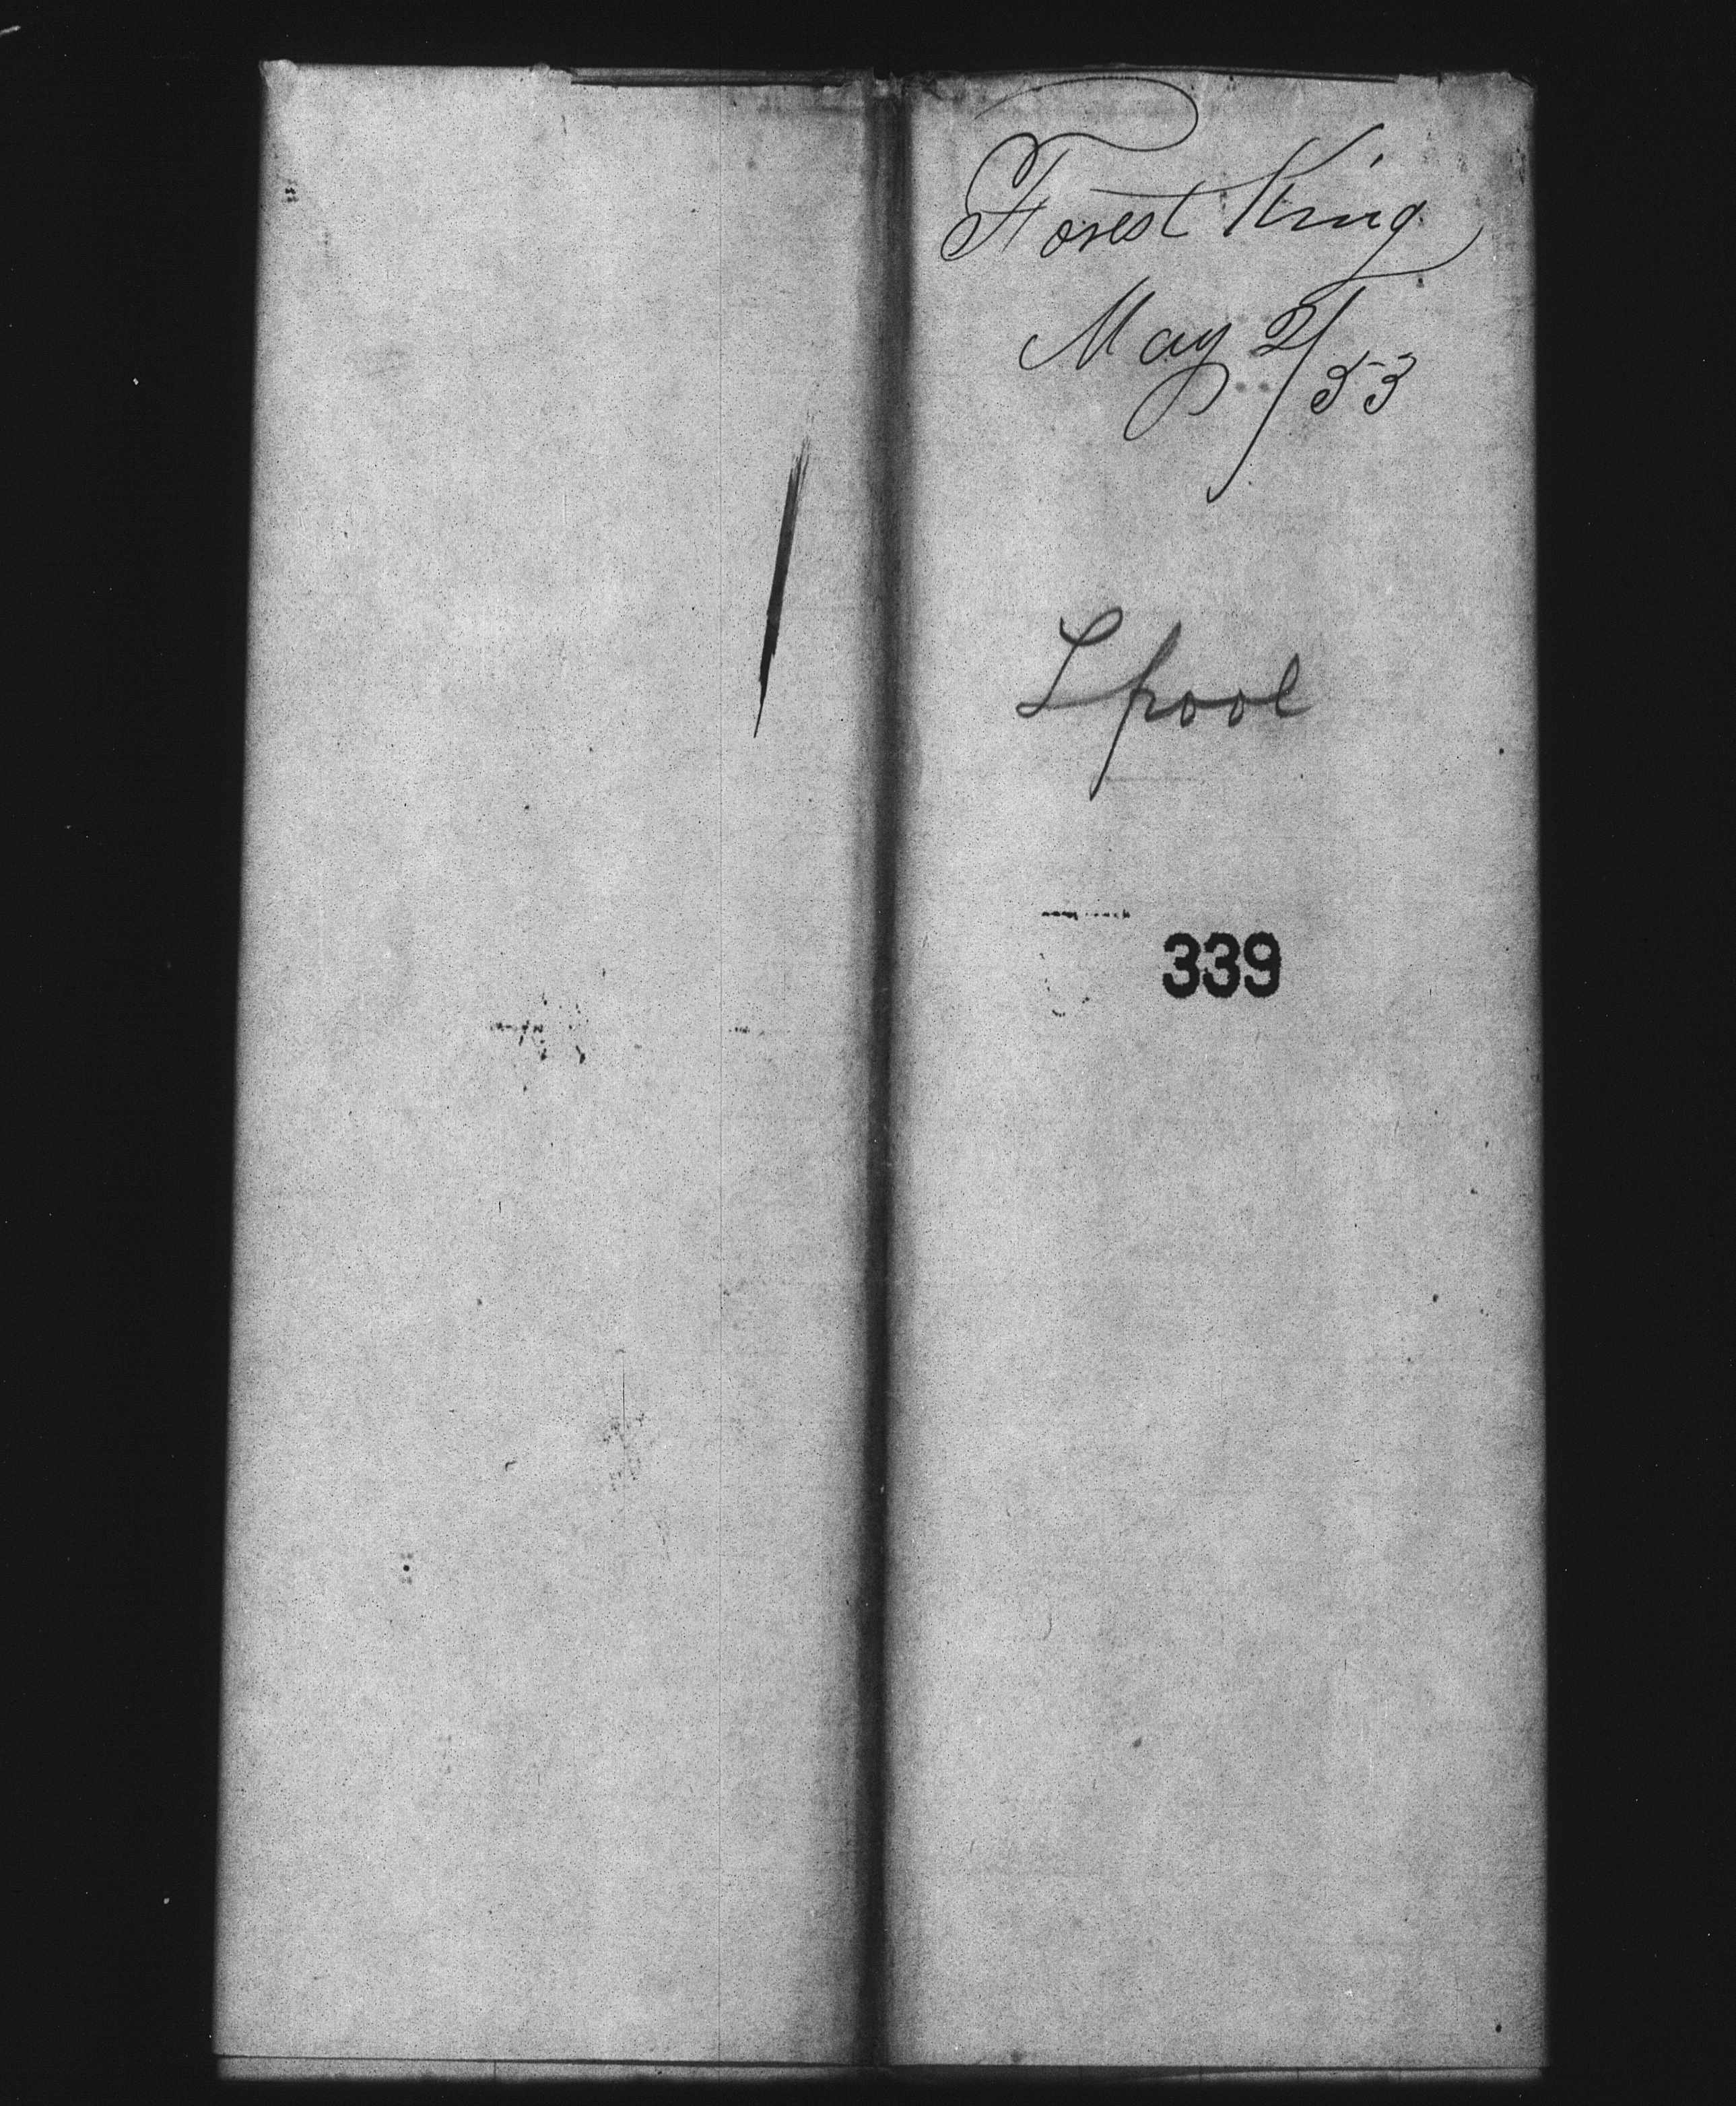 Forest King
May 2/53
Lpool
339